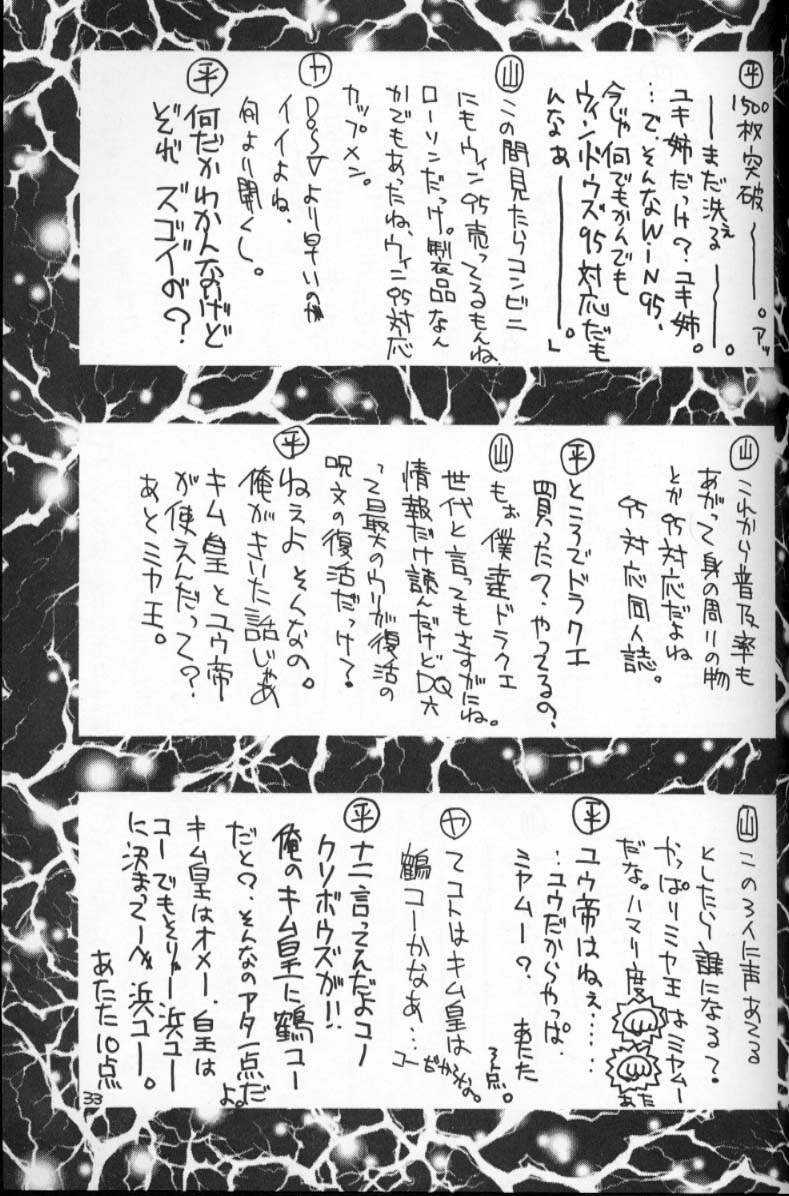 ㊥1500枚突破〜〜〜。アッ
――まだ洗るぇ――。
ユキ姉だっけ?ユキ姉。
…で、そんなWiN95、
今じゃ何でもかんでも
ウィンドウズ95対応だも
んなぁ―――。」
㊤この間見たらコンビニ
にもウィン95売ってるもんね、
ローソンだっけ。製品なん
かでもあったね、ウィン95対応
カップメン。
ヤ DOS/Vより早いのが
イイよね、
何より聞くし。
平 何だかわかんなけど
それ ズゴイが?
山 これから普及率も
あがって身の周りの物
とか95対応だよね
95対応同人誌。
平 ところでドラクエ
買ったの?やってるの?
山 もぉ僕達ドラクエ
世代と言ってもさすがにね。
情報だけ読んだけどDQ六
って最大のウリが復活の
呪文の復活だっけ?
平 ねぇよそんなの。
俺がきいた話じゃあ
キム皇とユウ帝
が使えんだって?
あとミヤ王。
山 この3人に声あてる
としたら誰になる?
かっぱりミヤ王はミヤムー
だな。ハマリ度
あた
平 ユウ帝はねぇ……
…ユウだからやっぱ
ミヤムー? あたた
3点。
ヤ てコトはキム皇は
鶴コーかなあ…
コーだからね。
平 ナニ言ってんだよコノ
クソボウズが!!
俺のキム皇に鶴コー
だと?そんなのアタ一点だ
よ。
キム皇はオメー、皇は
コーでもそりゃー浜コー
に決まってーべ浜コー。
あたた10点
33